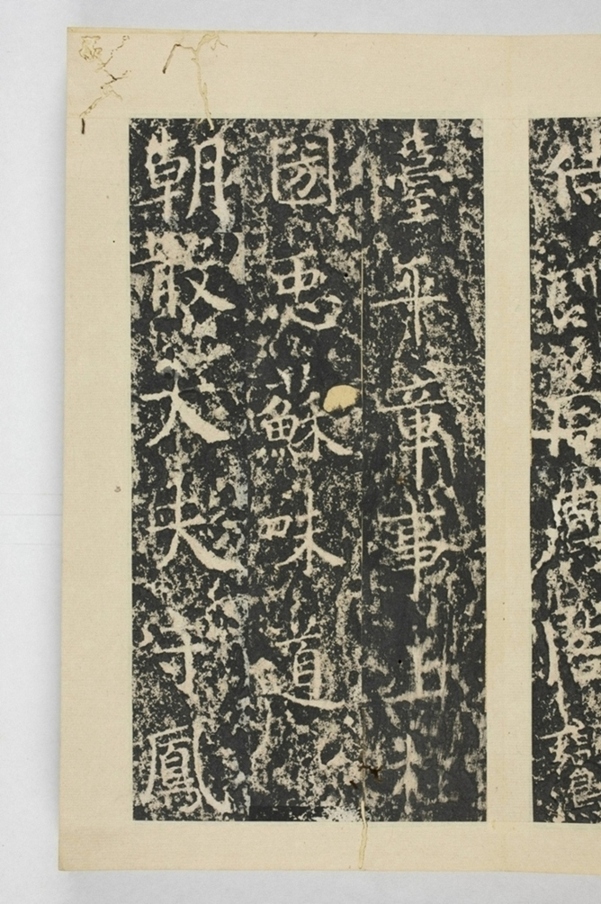 臺平章事上柱
圀𢘑蘇味道
朝散大夫守鳳